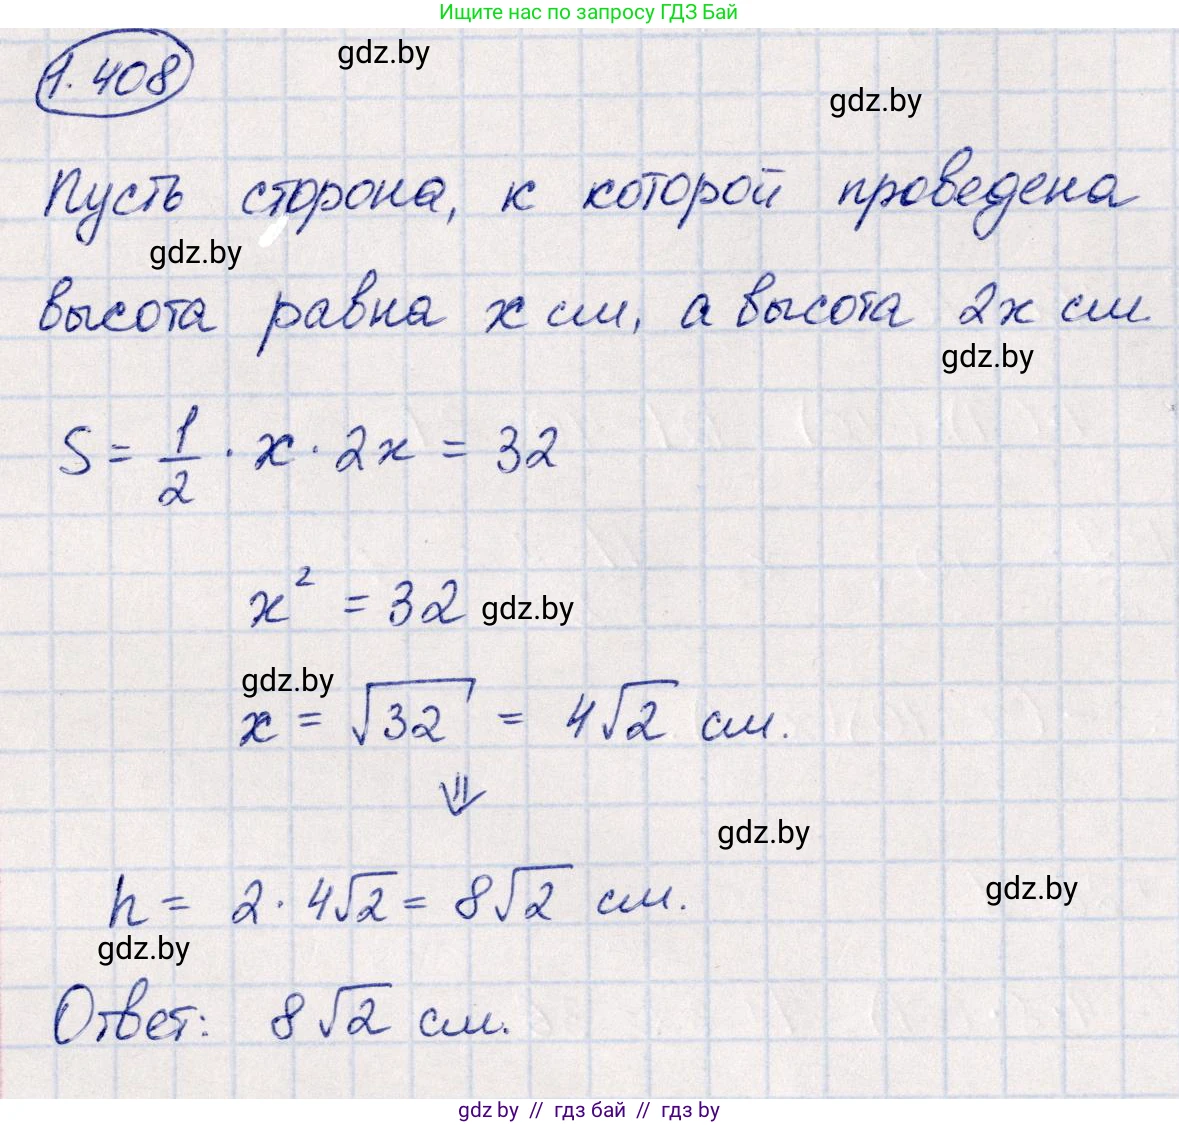 Ищите нас по запросу ГДЗ Бай
1.408
gdz.by
gdz.by
Пусть сторона, к которой проведена
gdz.by
высота равна x см, а высота 2x см.
gdz.by
S = 1/2 · x · 2x = 32
x² = 32
gdz.by
gdz.by
x = √32 = 4√2 см.
⇓
gdz.by
h = 2 · 4√2 = 8√2 см.
gdz.by
gdz.by
Ответ: 8√2 см.
gdz by // гдз бай // гдз by